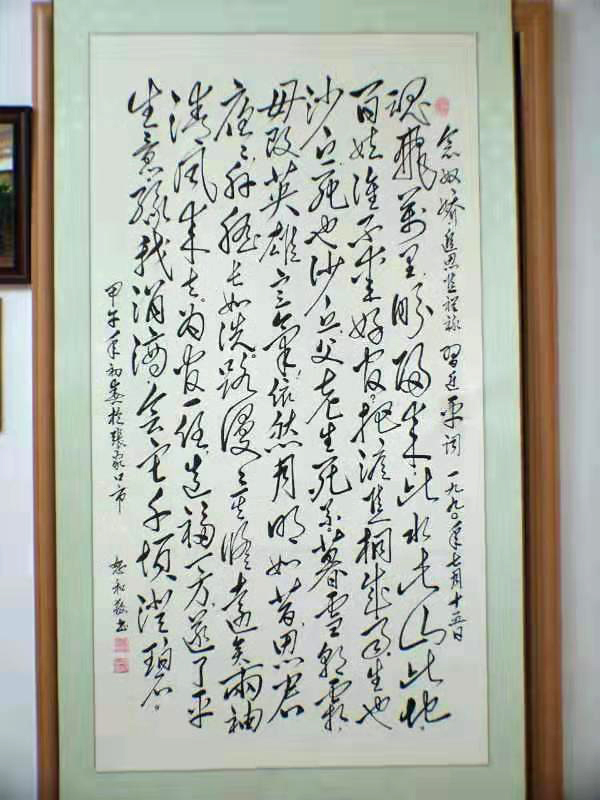 念奴嬌 追思焦裕祿 習近平词 一九九〇年七月十五日
魂飛萬里盼歸來此水此山此地
百姓谁不爱好官？把淚焦桐成雨生也
沙丘死也沙丘父老生死系暮雪朝霜
毋改英雄意氣依然月明如昔思君
夜夜肝膽長如洗路漫漫其修遠矣兩袖
清风来去为官一任造福一方遂了平
生意綠我涓滴會它千頃澄碧。
甲午年初 於張家口市
和 书